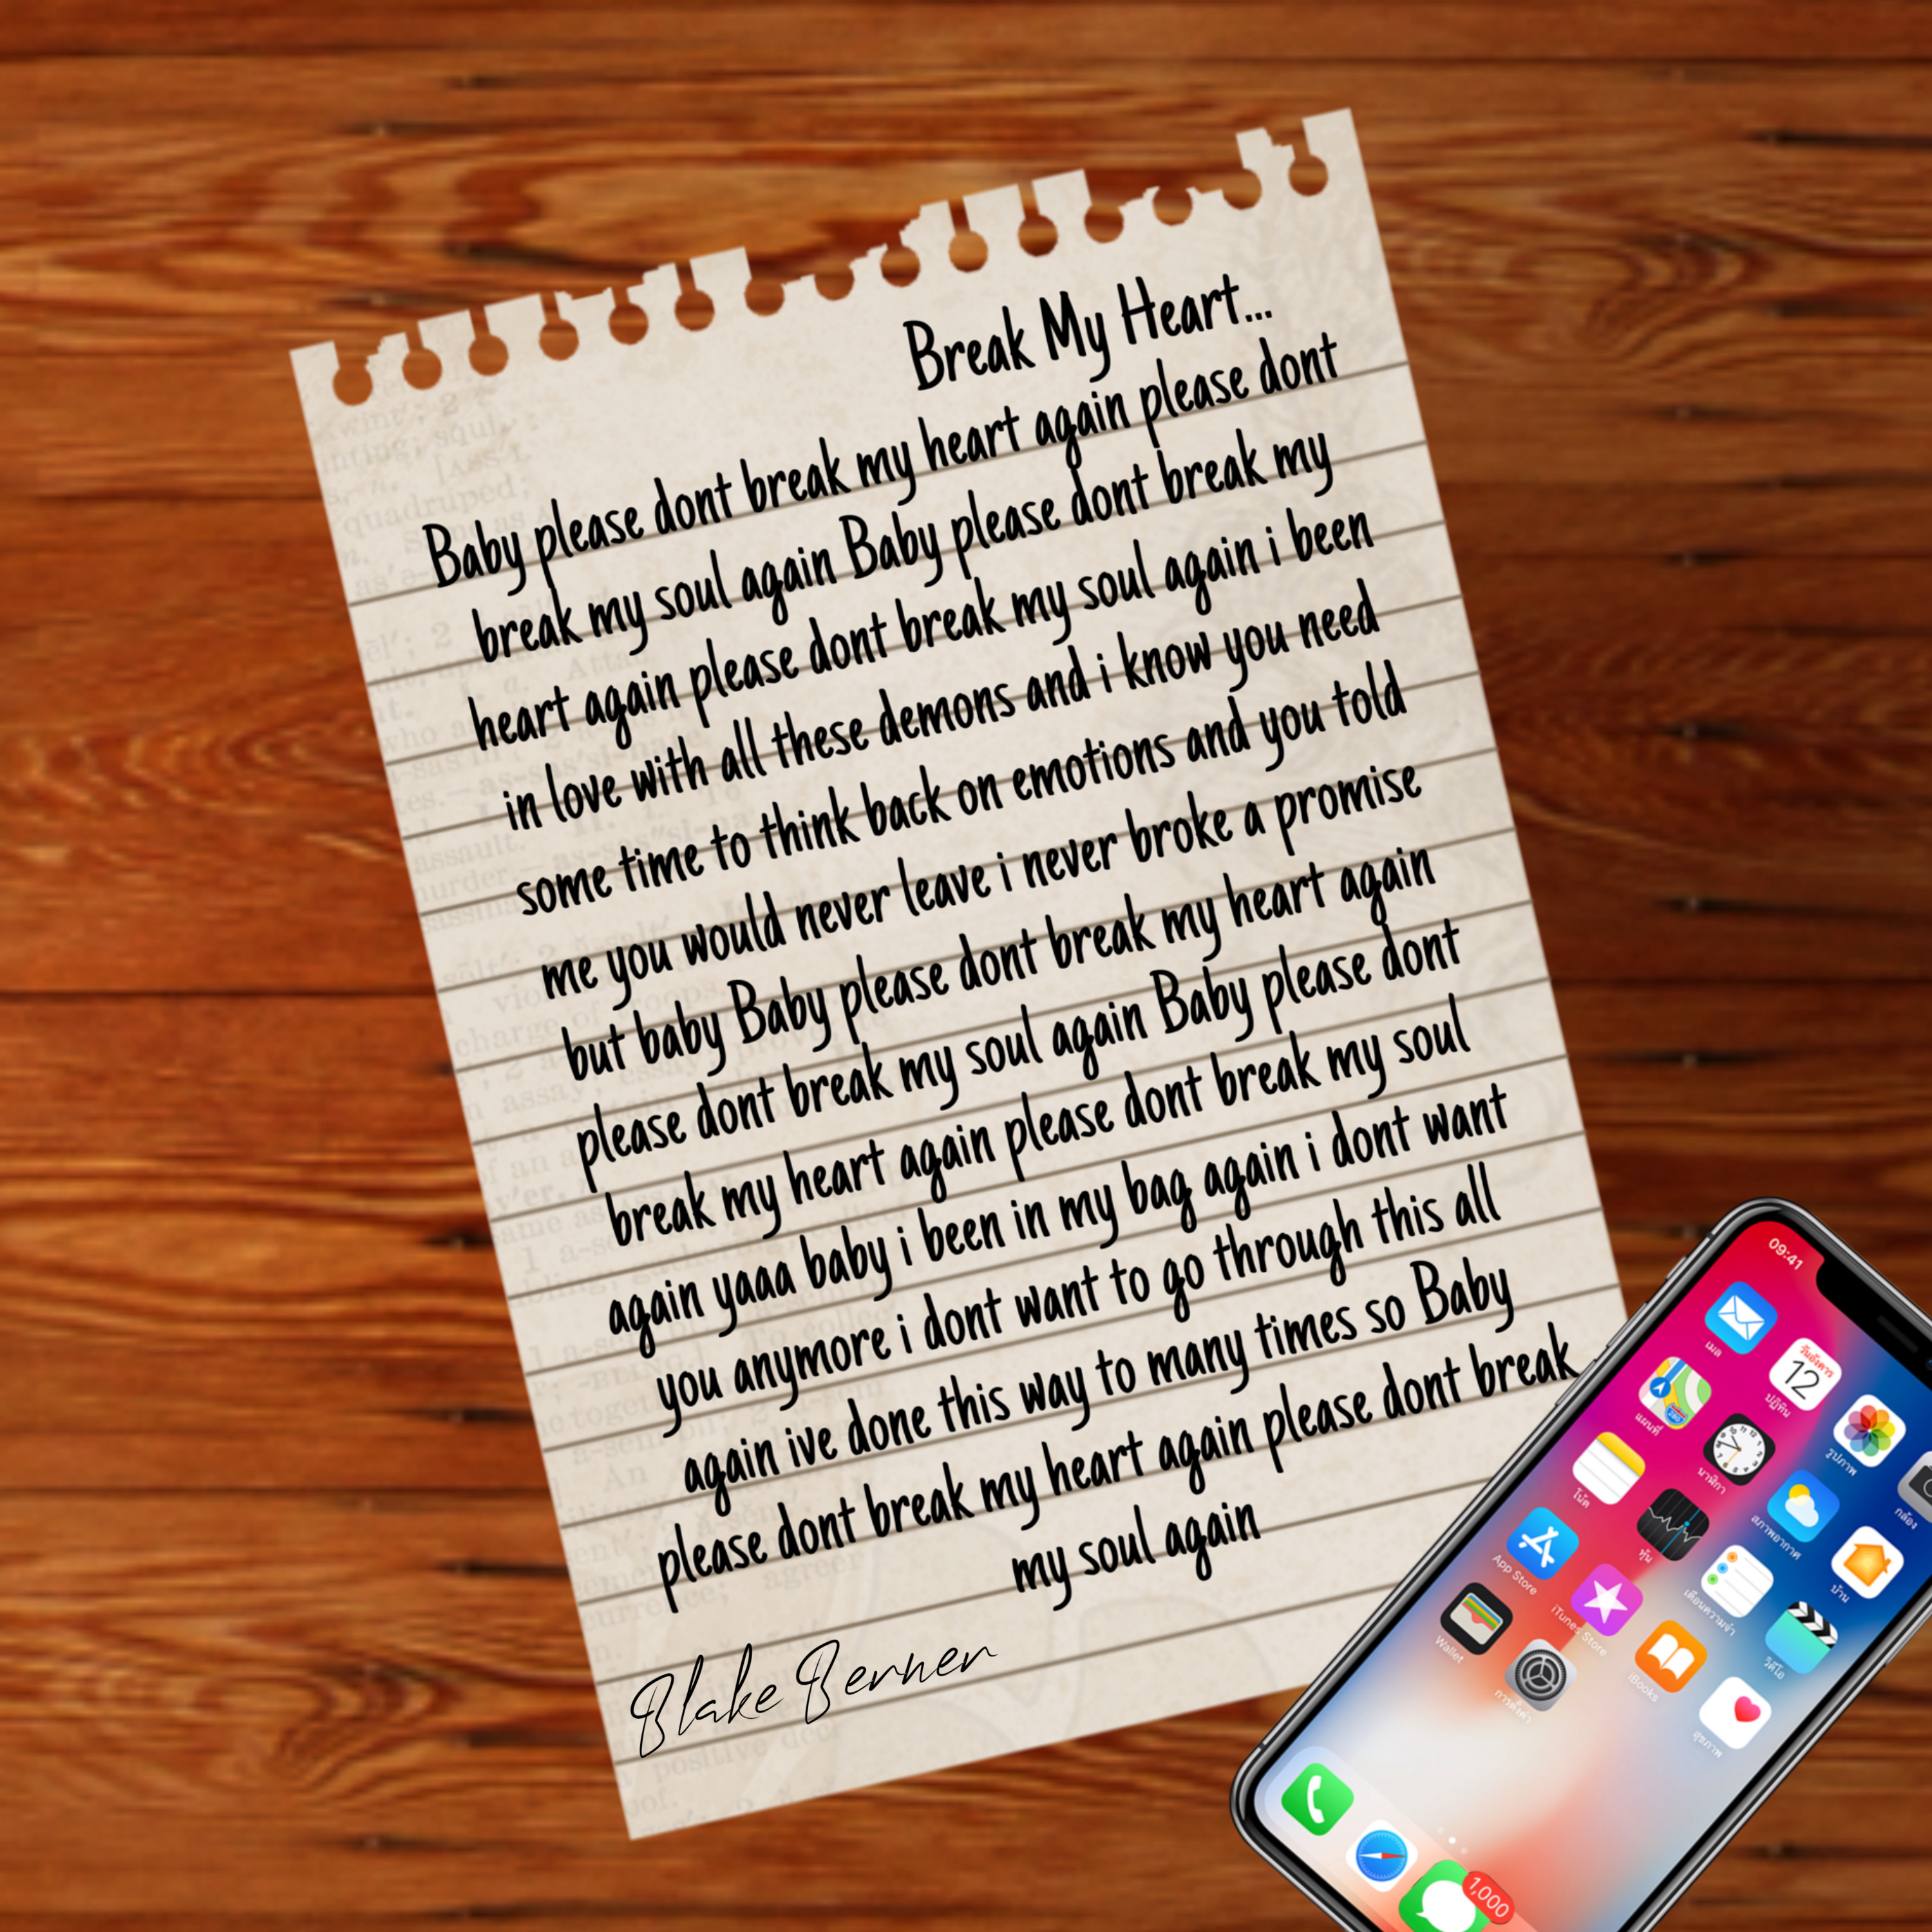 Break My Heart...
Baby please dont break my heart again please dont
break my soul again Baby please dont break my
heart again please dont break my soul again i been
in love with all these demons and i know you need
some time to think back on emotions and you told
me you would never leave i never broke a promise
but baby Baby please dont break my heart again
please dont break my soul again Baby please dont
break my heart again please dont break my soul
again yaaa baby i been in my bag again i dont want
you anymore i dont want to go through this all
again ive done this way to many times so Baby
please dont break my heart again please dont break
my soul again
Blake Berner
09:41
เมล
วันอังคาร
12
ปฏิทิน
รูปภาพ
กล้อง
แผนที่
นาฬิกา
สภาพอากาศ
บ้าน
โน้ต
หุ้น
เตือนความจำ
วิดีโอ
App Store
iTunes Store
iBooks
สุขภาพ
Wallet
การตั้งค่า
1,000